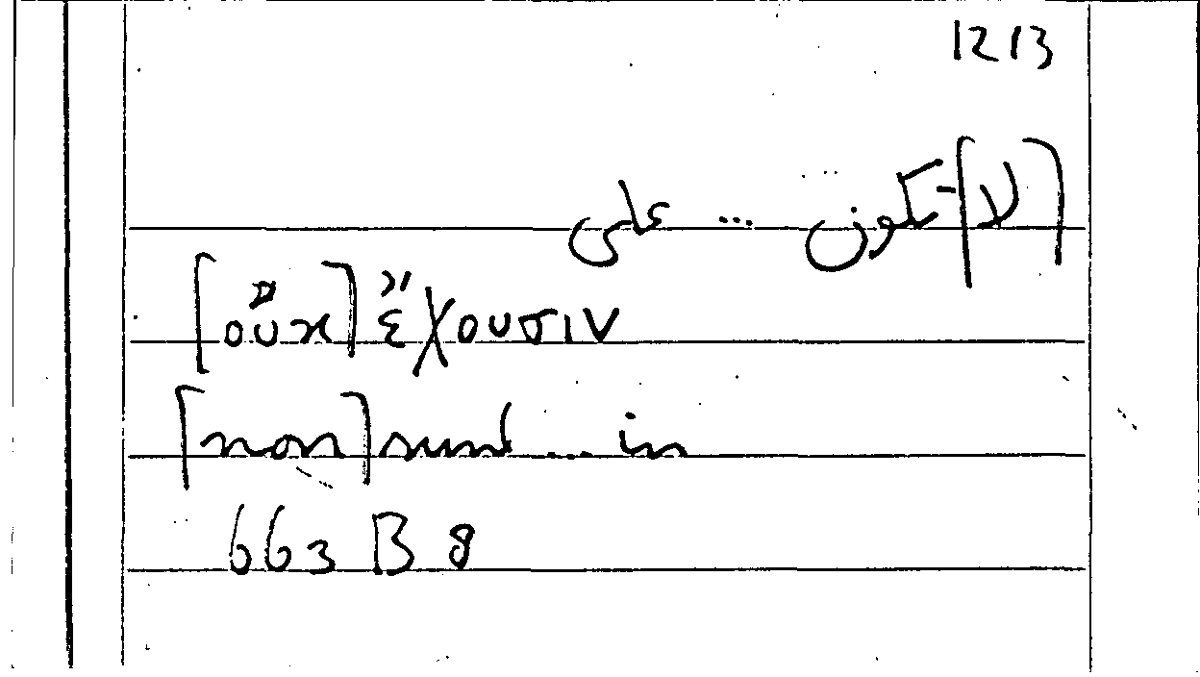 1213
[لا] تكون ... على
[οὐκ] ἔχουσιν
[non] sunt ... in
663 B 8